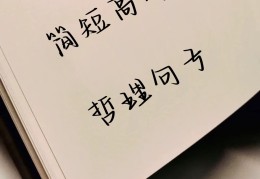 简短高
哲理句子